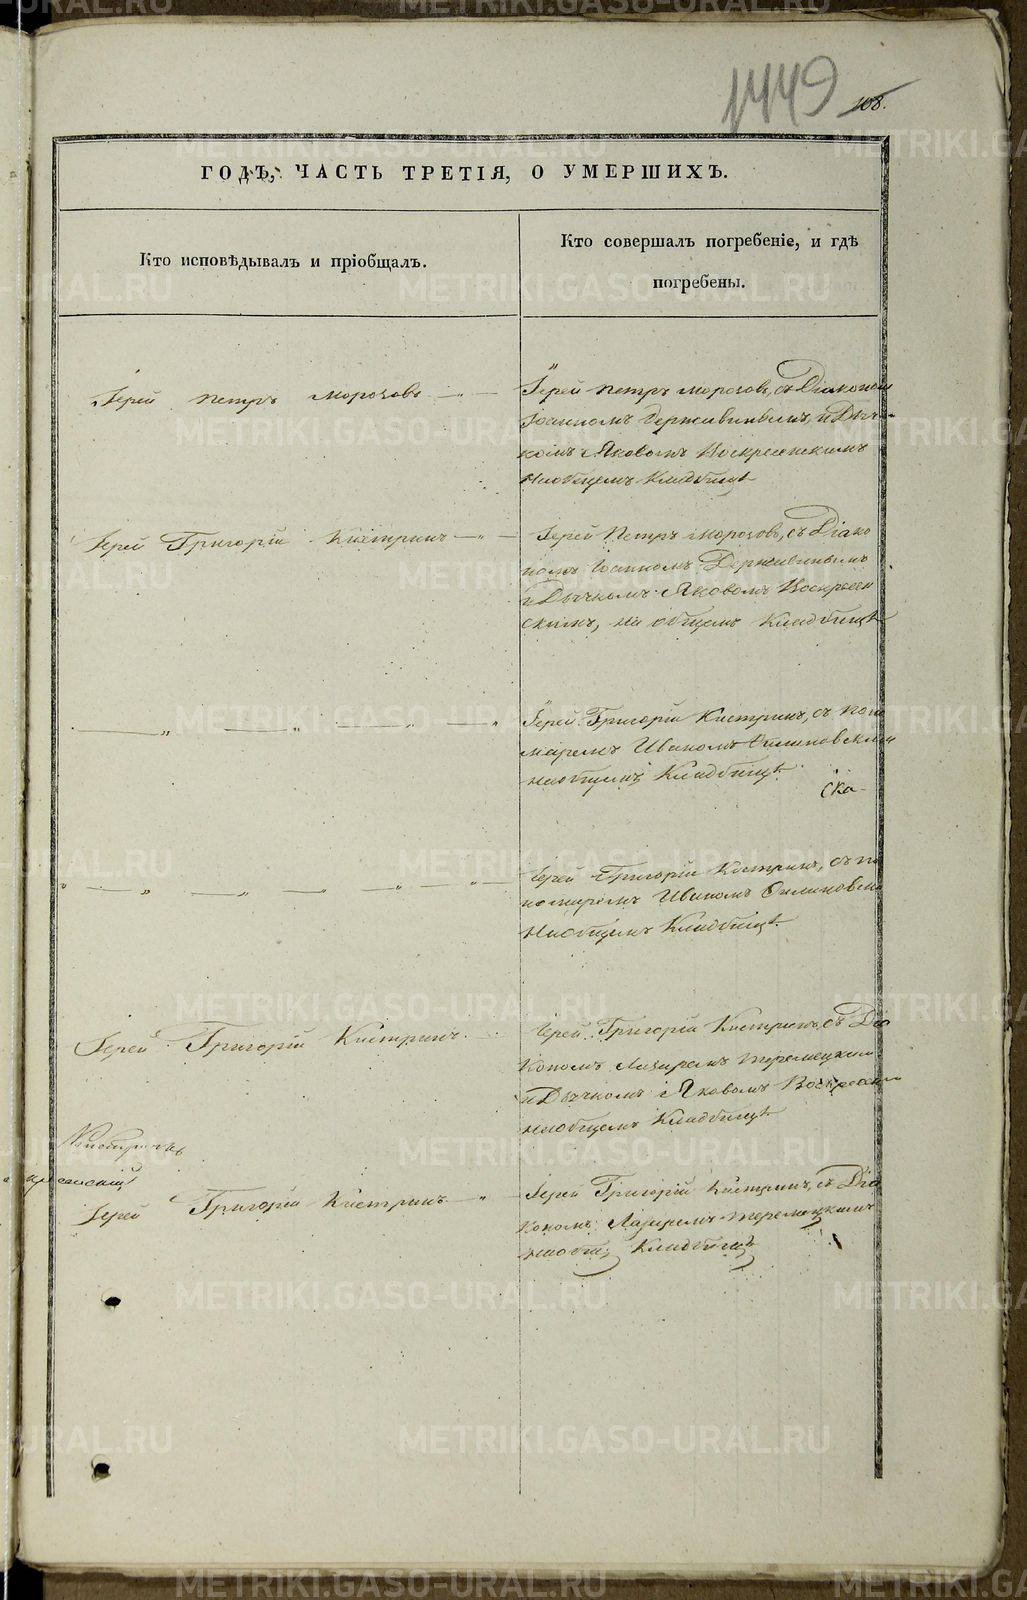 1449
108.
ГОДЪ, ЧАСТЬ ТРЕТІЯ, О УМЕРШИХЪ.
Кто исповѣдывалъ и пріобщалъ.
Кто совершалъ погребеніе, и гдѣ
погребены.
Іерей Петръ Морозовъ
Іерей Петръ Морозовъ, съ Діакономъ
Іоанномъ Державинымъ, и Дьч-
комъ Яковомъ Воскресенскимъ
на общемъ Кладбищѣ
Іерей Григорій Кистринъ
Іерей Петръ Морозовъ, съ Діако
номъ Іоанномъ Державинымъ
и Дьчкомъ Яковомъ Воскресен
скимъ, на общемъ Кладбищѣ
Іерей Григорій Кистринъ, съ Поно
маремъ Иваномъ
на общемъ Кладбищѣ.
Ска-
Іерей Григорій Кистринъ, съ По
номаремъ Иваномъ
На общемъ Кладбищѣ.
Іерей Григорій Кистринъ.
Іерей Григорій Кистринъ, съ Діа
кономъ Лазаремъ
и Дьчкомъ Яковомъ
на общемъ Кладбищѣ
Іерей Григорій Кистринъ
Іерей Григорій Кистринъ, съ Діа
кономъ Лазаремъ
на общ. Кладбищѣ
METRIKI.GASO-URAL.RU